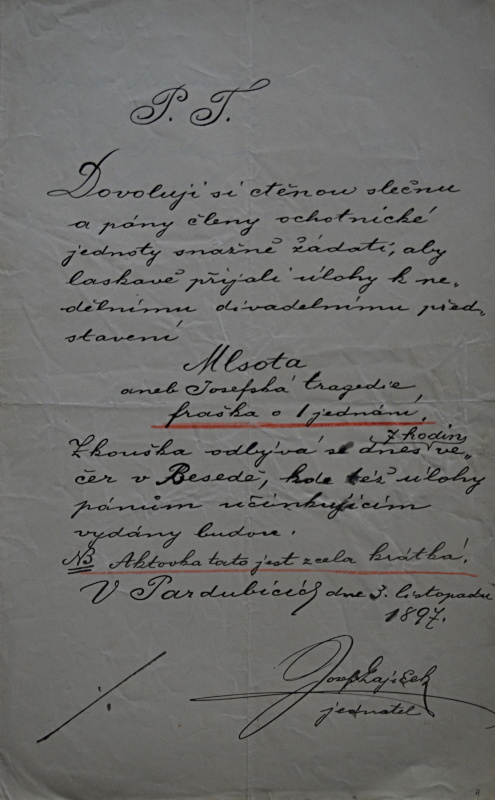 P. T.
Dovoluji si ctěnou slečnu
a pány členy ochotnické
jednoty snažně žádati, aby
laskavě přijali úlohy k ne-
dělnímu divadelnímu před-
stavení
Mlsota
aneb Josefská tragedie
fraška o 1 jednání.
7 hodin
Zkouška odbývá se dnes ve-
čer v Besedě, kde též úlohy
pánům účinkujícím
vydány budou.
NB Aktovka tato jest zcela krátká!
V Pardubicích dne 3. listopadu
1897.
Josef
jednatel